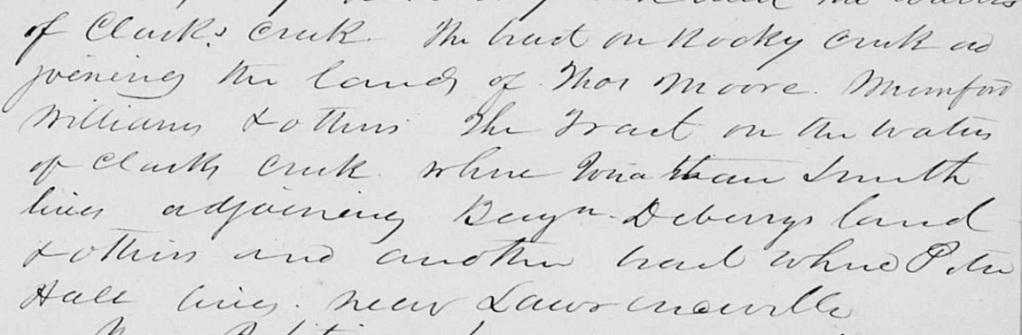 the waters
of Clarks Creek. The tract on Rocky Creek ad
joining the lands of Thos Moore. Mumford
Williams & others The Tract on the waters
of Clarks Creek where Jonathan Smith
lives adjoining Benjn. Deberrys land
& others and another tract where Peter
Hall lives. near Lawrenceville